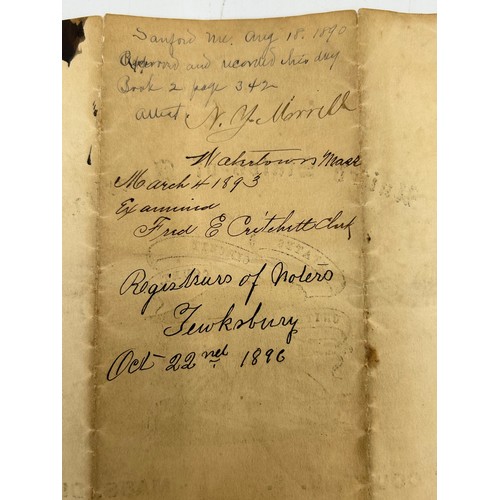 Sanford Me. Aug 18. 1890
and recorded this day
Book 2 page 342
attest. N. Y. Morrill
Watertown Mass
March 4 1893
Examined
Fred E Critchett Clerk
Registrars of Voters
Tewksbury
Oct 22nd 1896